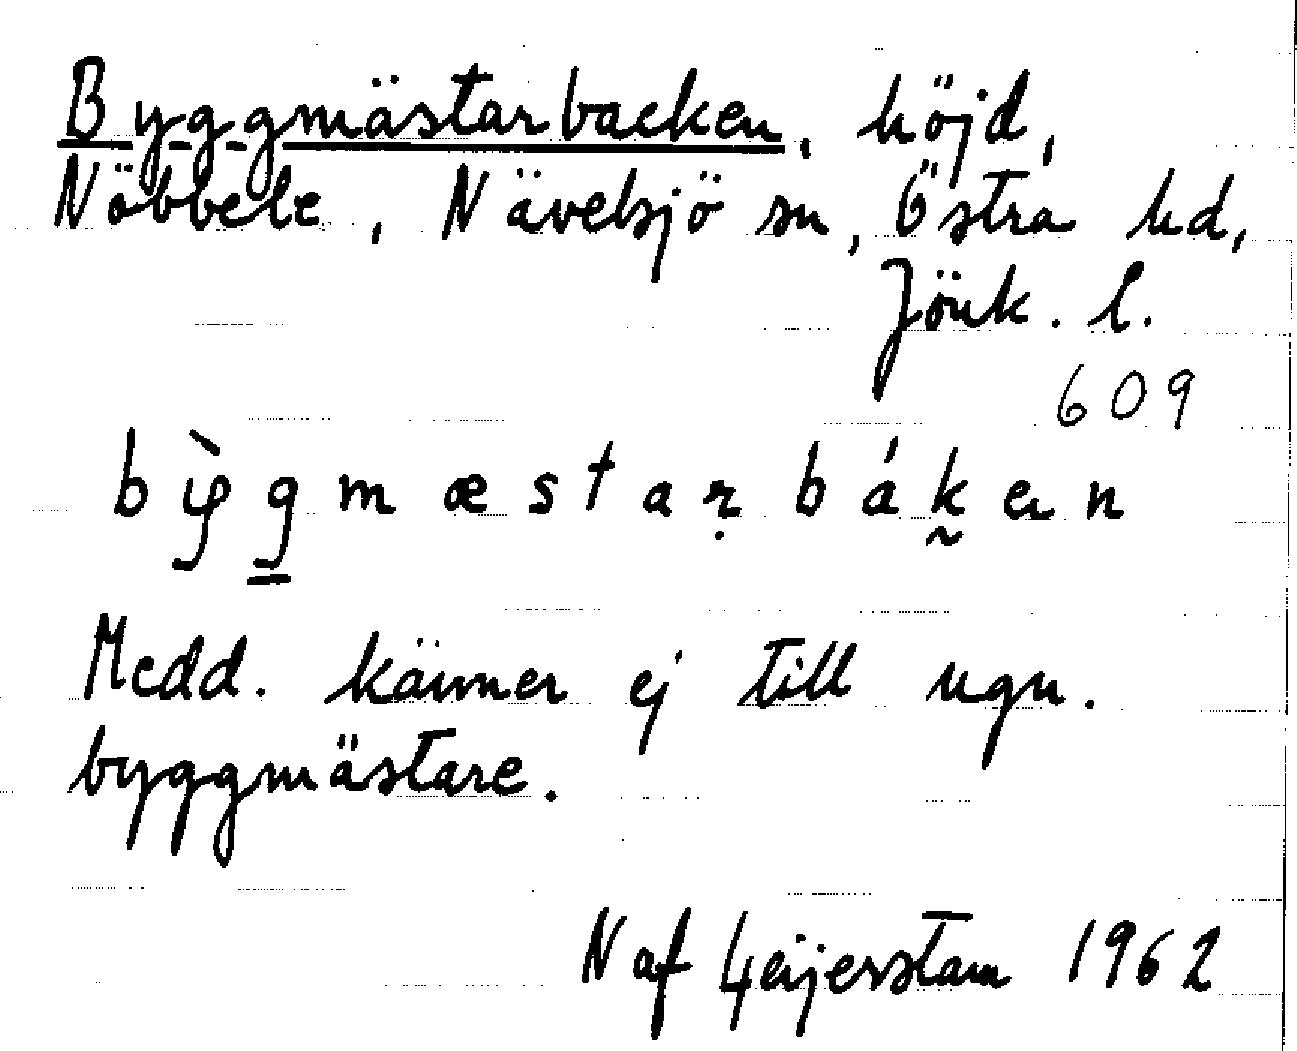 Byggmästarbacken, höjd,
Nöbbele, Nävelsjö sn, Östra hd,
Jönk. l.
609
bỳg̠mæstaṛbák̰en
Medd. känner ej till ngn.
byggmästare.
N af Geijerstam 1962